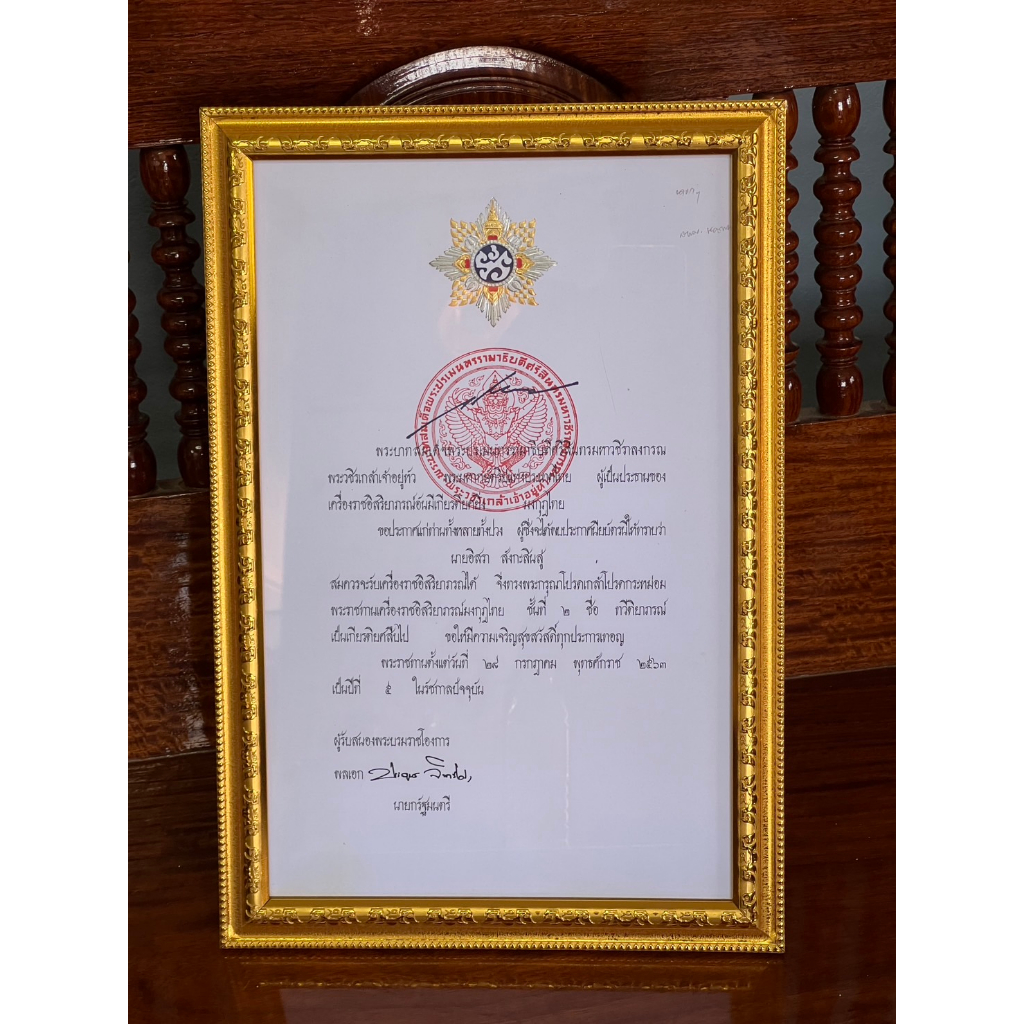 พระบาทสมเด็จพระปรเมนทรรามาธิบดีศรีสินทรมหาวชิราลงกรณ
พระวชิรเกล้าเจ้าอยู่หัว ผู้เป็นประธานของ
เครื่องราชอิสริยาภรณ์อันมีเกียรติยศยิ่ง มงกุฎไทย
ขอประกาศแก่ท่านทั้งหลายทั้งปวง ผู้ซึ่งจะได้พบประกาศนียบัตรนี้ให้ทราบว่า
นายอิสรา สังกะสินสู่
สมควรจะรับเครื่องราชอิสริยาภรณ์ได้ จึ่งทรงพระกรุณาโปรดเกล้าโปรดกระหม่อม
พระราชทานเครื่องราชอิสริยาภรณ์มงกุฎไทย ชั้นที่ ๒ ชื่อ ทวีติยาภรณ์
เป็นเกียรติยศสืบไป ขอให้มีความเจริญสุขสวัสดิ์ทุกประการเทอญ
พระราชทานตั้งแต่วันที่ ๒๘ กรกฎาคม พุทธศักราช ๒๕๖๓
เป็นปีที่ ๕ ในรัชกาลปัจจุบัน
ผู้รับสนองพระบรมราชโองการ
พลเอก
นายกรัฐมนตรี